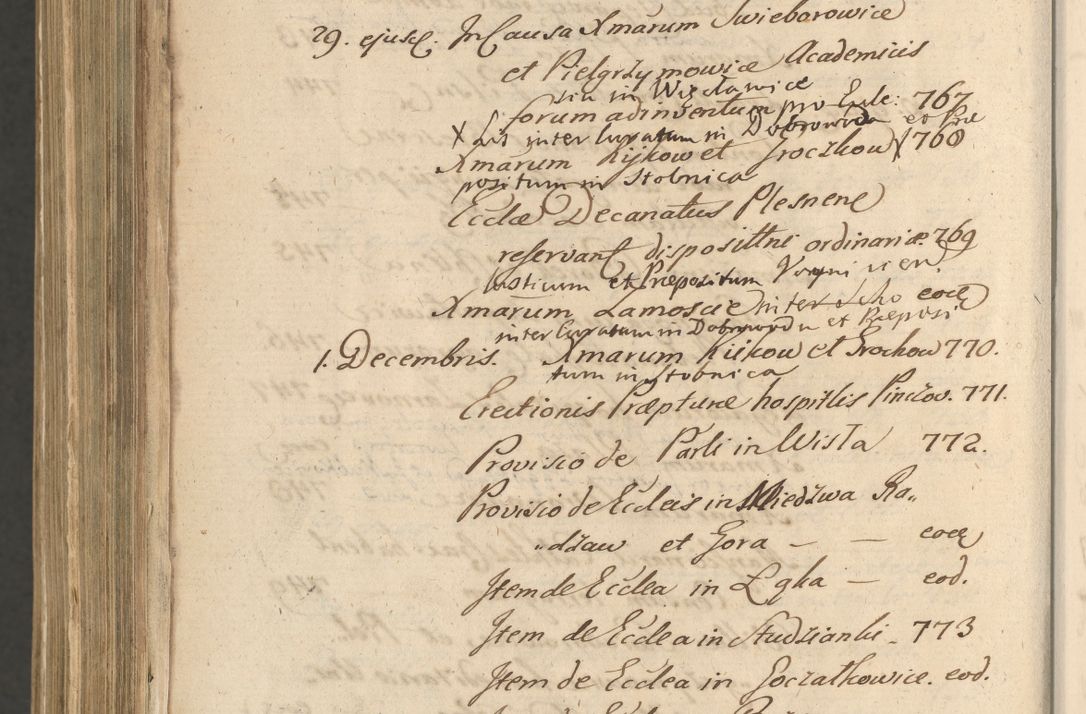 29. ejusd. In Causa Xmarum Swieborowice
et Pielgrzymowice Academicis
siu in Więcławice
forum adinventum pro Eccle: 767
X ais inter Curatum in Dobrowoda et Præ
Xmarum Kijkow et Groczkow X 768
positum in Stobnica
Ecclæ Decanatus Plesnene
reservant disposittni ordinariæ 769
lasticum et Præpositum
Xmarum Zamoscie inter Scho eode
inter Curatum in Dobrowoda et Præposi
1. Decembris. Xmarum Kikow et Grochow 770.
tum in Stobnica
Erectionis Præpturæ hospitlis Pinczov. 771.
Provisio de Parli in Wisła 772.
Provisio de Eccleis in Miedzwa Ra„
„dzaw et Gora — — eode
Item de Ecclea in Łgka — eod.
Item de Ecclea in Studzianki - 773
Item de Ecclea in Goczałkowice. eod.